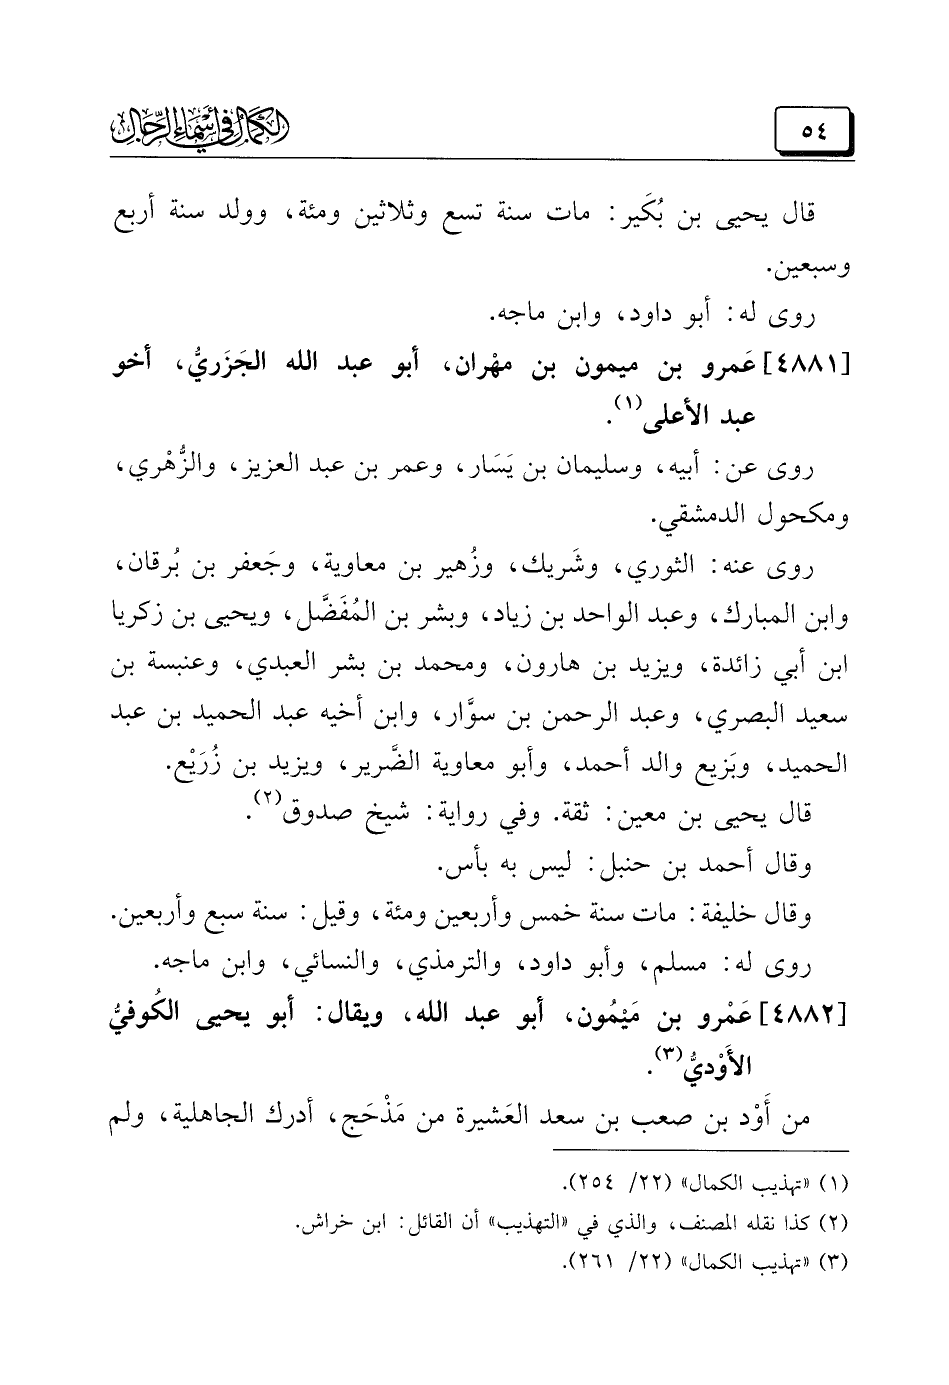 ٥٤
الكمال في أسماء الرجال
قال يحيى بن بُكَير: مات سنة تسع وثلاثين ومئة، وولد سنة أربع
وسبعين.
روى له: أبو داود، وابن ماجه.
[٤٨٨١] عَمرو بن ميمون بن مهْران، أبو عبد الله الجَزَريُّ، أخو
عبد الأعلى(١).
روى عن: أبيه، وسليمان بن يَسَار، وعمر بن عبد العزيز، والزُّهْري،
ومكحول الدمشقي.
روى عنه: الثوري، وشَريك، وزُهير بن معاوية، وجَعفر بن بُرقان،
وابن المبارك، وعبد الواحد بن زياد، وبشر بن المُفَضَّل، ويحيى بن زكريا
ابن أبي زائدة، ويزيد بن هارون، ومحمد بن بشر العبدي، وعنبسة بن
سعيد البصري، وعبد الرحمن بن سوَّار، وابن أخيه عبد الحميد بن عبد
الحميد، وبَزيع والد أحمد، وأبو معاوية الضَّرير، ويزيد بن زُرَيْع.
قال يحيى بن معين: ثقة. وفي رواية: شيخ صدوق(٢).
وقال أحمد بن حنبل: ليس به بأس.
وقال خليفة: مات سنة خمس وأربعين ومئة، وقيل: سنة سبع وأربعين.
روى له: مسلم، وأبو داود، والترمذي، والنسائي، وابن ماجه.
[٤٨٨٢] عَمْرو بن مَيْمُون، أبو عبد الله، ويقال: أبو يحيى الكُوفيُّ
الأَوْديُّ(٣).
من أَوْد بن صعب بن سعد العَشيرة من مَذْحَج، أدرك الجاهلية، ولم
(١) «تهذيب الكمال» (٢٢/ ٢٥٤).
(٢) كذا نقله المصنف، والذي في «التهذيب» أن القائل: ابن خراش.
(٣) «تهذيب الكمال» (٢٢/ ٢٦١).